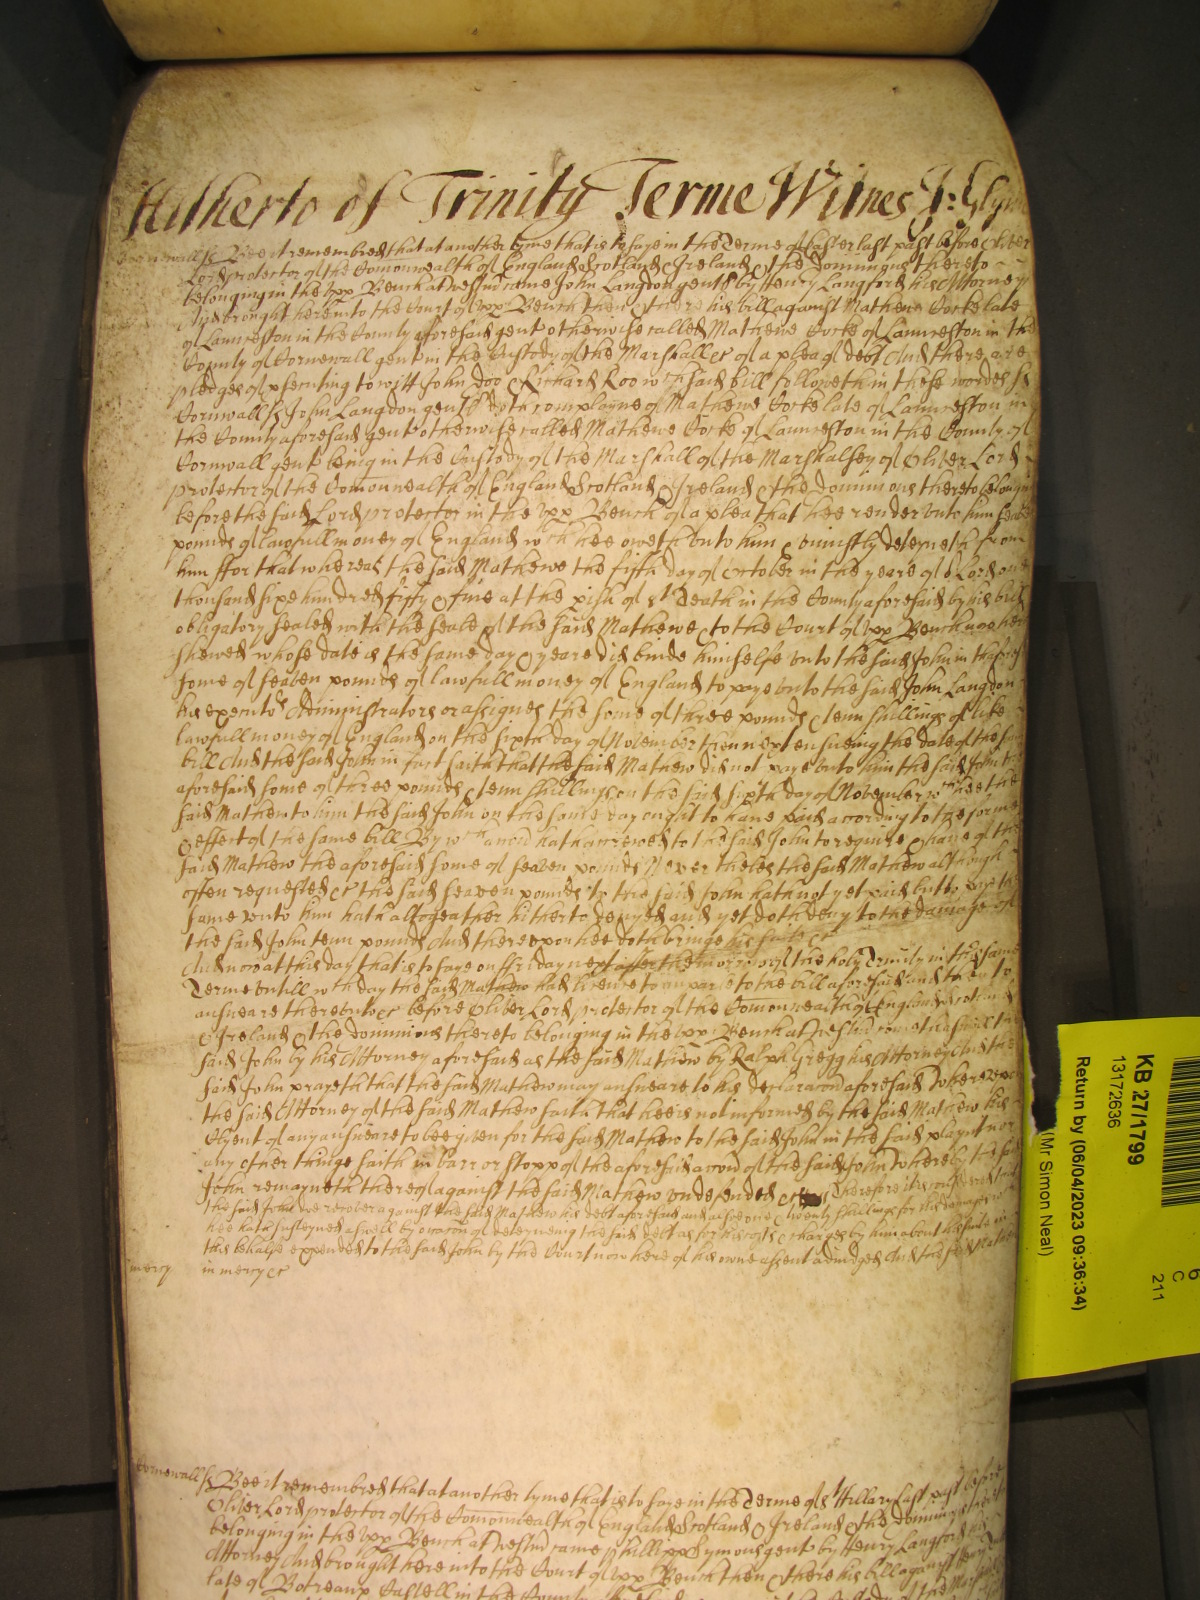 Hitherto of Trinity Terme Witnes J: Glyn
Cornewall ss Bee it remembred that at another tyme that is to saye in the Terme of Easter last past before Oliver
Lord protector of the Comonwealth of England Scotland & Ireland & the Dominions thereto
belonging in the vpp Bench at Westmr came John Langdon gent by Henry Langford his Attorney
And brought here into the Court of vpp Bench then & there his bill against Mathew Cocke late
of Launceston in the County aforesaid gent otherwise called Mathewe Cocke of Launceston in the
County of Cornewall gent in the Custody of the Marshall &c of a plea of debt And there are
pledges of psecuting to witt John Doo & Richard Roo wch said bill followeth in these wordes ss
Cornwall ss John Langdon gent doth complayne of Mathewe Cocke late of Launceston in
the County aforesaid gent otherwise called Mathewe Cocke of Launceston in the County of
Cornwall gent being in the Custody of the Marshall of the Marshalsey of Oliver Lord
protector of the Comonwealth of England Scotland & Ireland & the Dominions thereto belonging
before the said Lord protector in the vpp Bench of a plea that hee render vnto him seaven
pounds of lawfull money of England wch hee oweth vnto him & uniustly deteyneth from
him ffor that whereas the said Mathewe the fifth day of October in the yeare of or Lord one
thousand sixe hundred fifty & five at the pish of St Teath in the County aforesaid by his bill
obligatory sealed with the seale of the said Mathewe & to the Court of vpp Bench nowe here
shewed whose date is the same day & yeare did binde himselfe vnto the said John in the
some of seaven pounds of lawfull money of England to paye vnto the said John Langdon
his executors Administrators or assignes the some of three pounds & tenn shillings of like
lawfull money of England on the sixth day of November then next ensueing the date of the said
bill And the said John in fact saith that the said Mathew did not paye vnto him the said John the
aforesaid some of three pounds & tenn shillings on the said sixth day of November wch hee the
said Mathew to him the said John on the same day ought to haue paid according to the forme
& effect of the same bill By wch accon hath accrewed to the said John to require & haue of the
said Mathew the aforesaid some of seaven pounds Neverthelesse the said Mathew although
often requested &c the said seaven pounds to the said John hath not yet paid but to pay the
same vnto him hath altogeather hitherto denyed and yet doth deny to the damage of
the said John tenn pounds And thereupon hee doth bringe his suite &c
And now at this day that is to saye on ffriday next after the morrow of the holy Trinity in this same
Terme vntill wch day the said Mathew had licence to imparle to the bill aforesaid and then to
answeare therevnto &c before Oliver Lord protector of the Comonwealth of England Scotland
& Ireland & the Dominions thereto belonging in the vpp Bench at Westmr cometh aswell the
said John by his Attorney aforesaid as the said Mathew by Ralph Gregg his Attorney And the
said John prayeth that the said Mathew may answeare to his declaracon aforesaid Whereupon
the said Attorney of the said Mathew saith that hee is not informed by the said Mathew his
Clyent of any answeare to bee given for the said Mathew to the said John in the said playnt nor
any other thinge saith in barr or stopp of the aforesaid accon of the said John Whereby the said
John remayneth thereof against the said Mathew vndefended &c Therefore it is considered that
the said John doe recover against the said Mathew his debt aforesaid and alsoe one & twenty shillings for his damages wch
hee hath susteyned aswell by occacon of deteyneing the said debt as for his costs & charges by him about his suite in
this behalfe expended to the said John by the Court now here of his owne assent adiudged And the said Mathew
mercy in mercy &c
Cornewall ss Bee it remembred that at another tyme that is to saye in the Terme of St Hillary last past before
Oliver Lord protector of the Comonwealth of England Scotland & Ireland & the Dominions thereto
belonging in the vpp Bench at Westmr came Phillipp Symons gent by Henry Langford his
Attorney And brought here into the Court of vpp Bench then & there his bill against
late of Botreaux Castell in the County
KB 27/1799
13172636
Return by (06/04/2023 09:36:34)
(Mr Simon Neal)
6
C
211